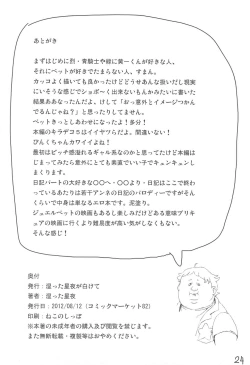 あとがき
まずはじめに剣・青騎士や緑に黄一くんが好きな人。
それにペットが好きでたまらない人、すまん。
カッコよく描いても良かったけどどうせあんな扱いだし現実
にいそうな感じでショボ～く出来ないもんかみたいに書いた
結果ああなったんだよ。けして「おっ意外とイメージつかん
でるんじゃね?」と思ったりしてません。
ペットきっとしあわせになったよ!多分!
本編のキラデコ5はイイヤツらだよ。間違いない!
ぴんくちゃんカワイイよね!
最初はビッチ感溢れるギャル系なのかと思ってたけど本編は
じまってみたら意外にとても素直でいい子でキュンキュンし
まくります。
日記パートの大好きな〇〇へ・〇〇より・日記はここで終わ
っているあたりは若干アンネの日記のパロディーですがそん
くらいで中身は単なるエロ本です。泥塗り。
ジュエルペットの映画もあるし楽しみだけどある意味プリキ
ュアの映画に行くより難易度が高い気がしなくもない。
そんな感じ!
奥付
発行:湿った星夜が白けて
著者:湿った星夜
発行日:2012/08/12(コミックマーケット82)
印刷:ねこのしっぽ
※本書の未成年者の購入及び閲覧を禁じます。
また無断転載・複製等はおやめください。
24